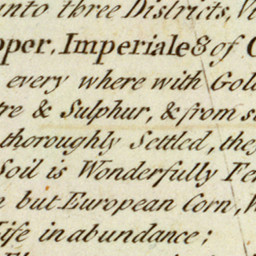 unto three Districts, Vi
pper, Imperiale & of C
every where with Gold
tre & Sulphur, & from s
thoroughly Settled, the
Soil is Wonderfully Fe
e but European Corn, W
Life in abundance;